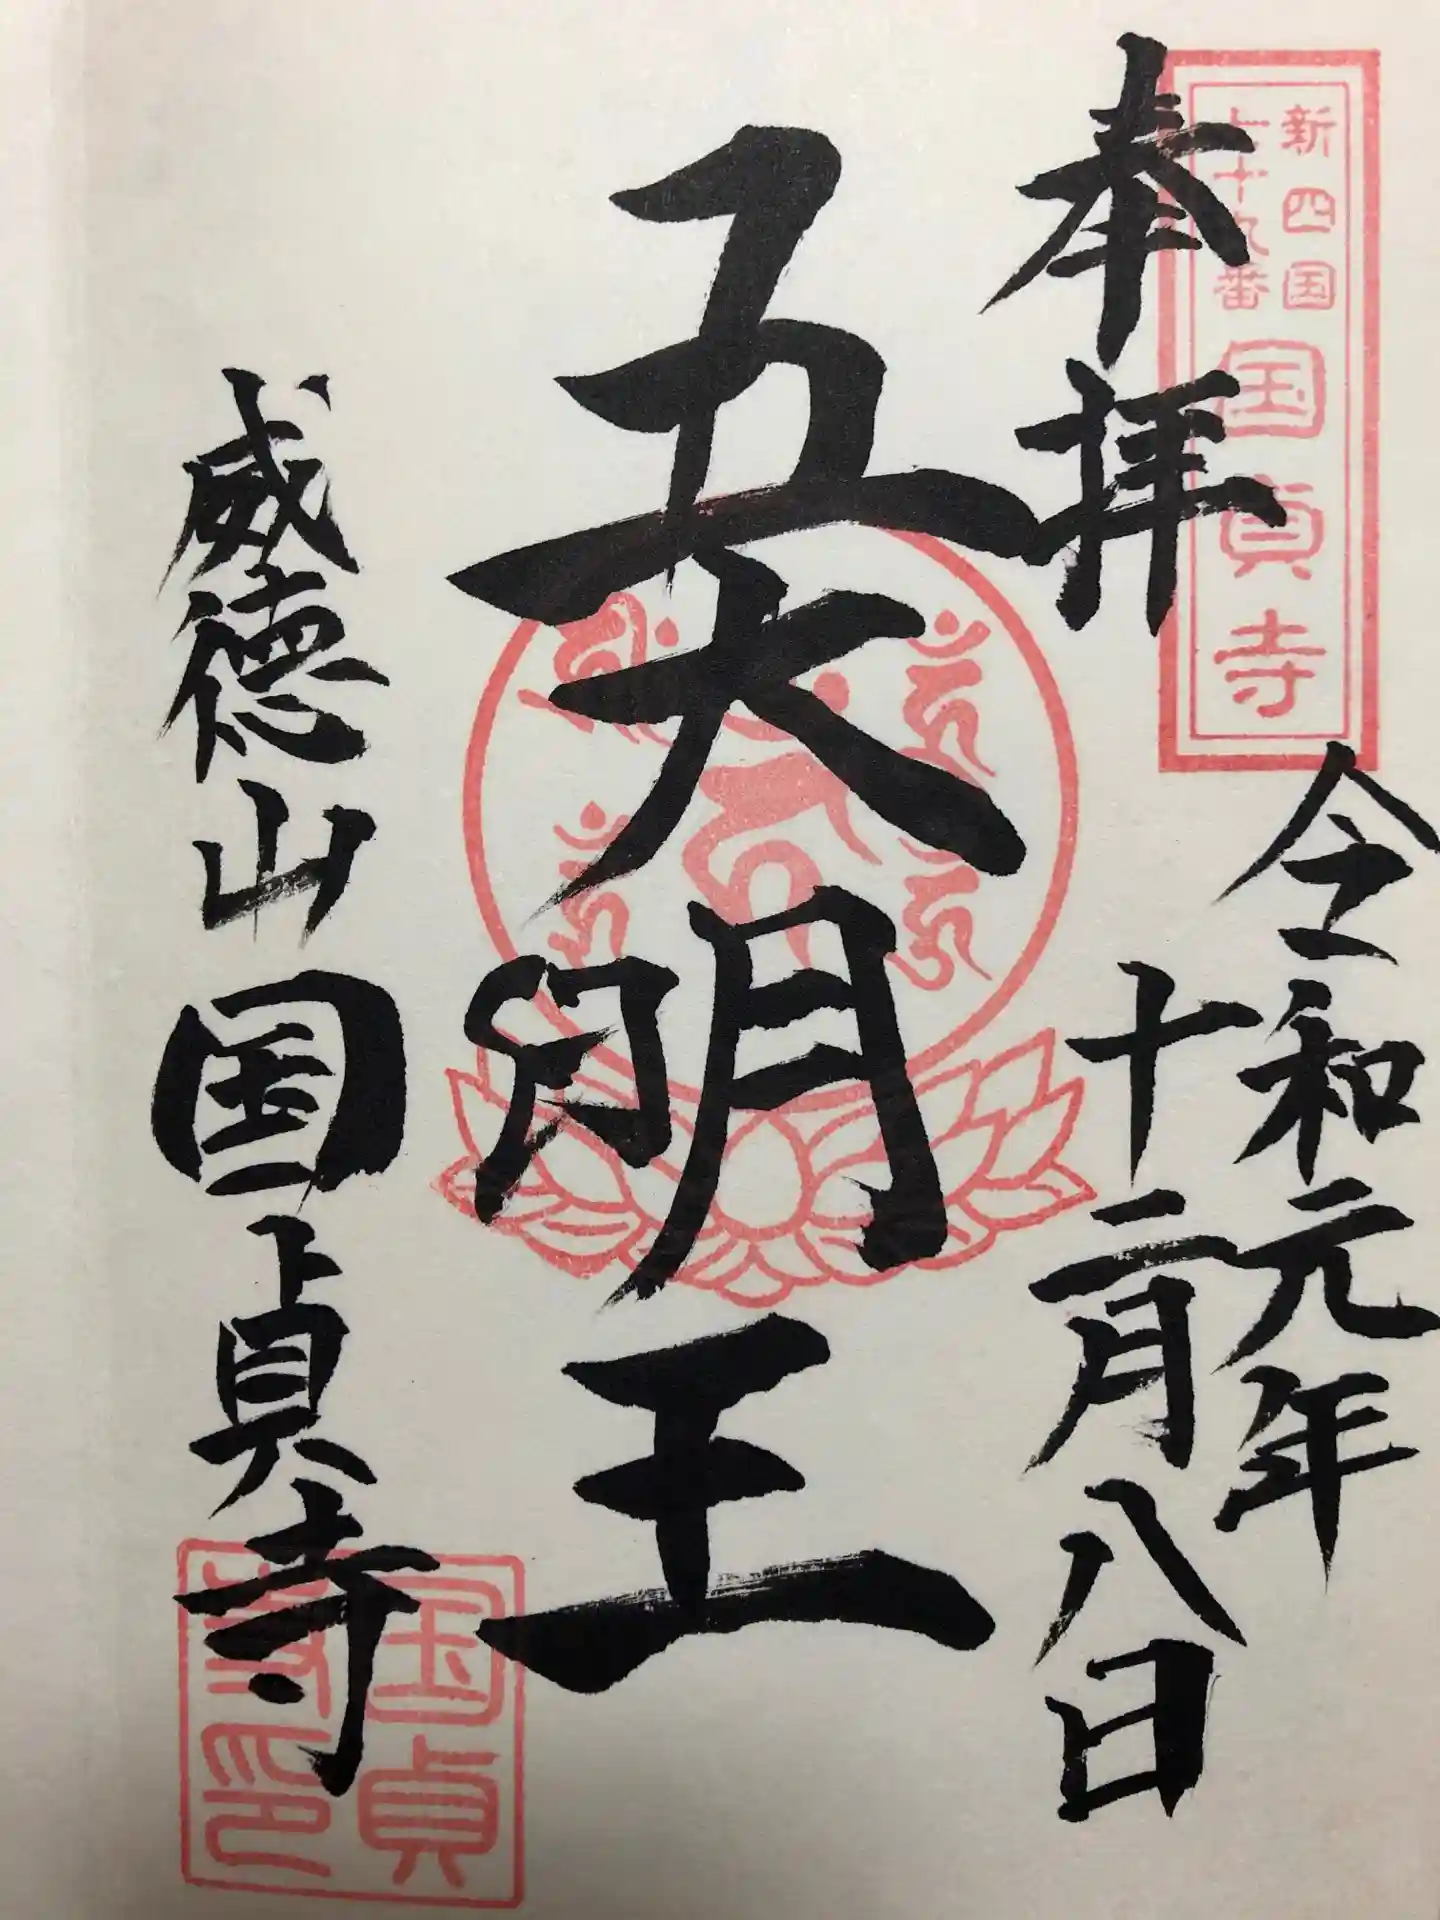 新四国
七十九番
国貞寺
奉拝
令和元年
十二月八日
五大明王
威徳山国貞寺
国貞
寺印